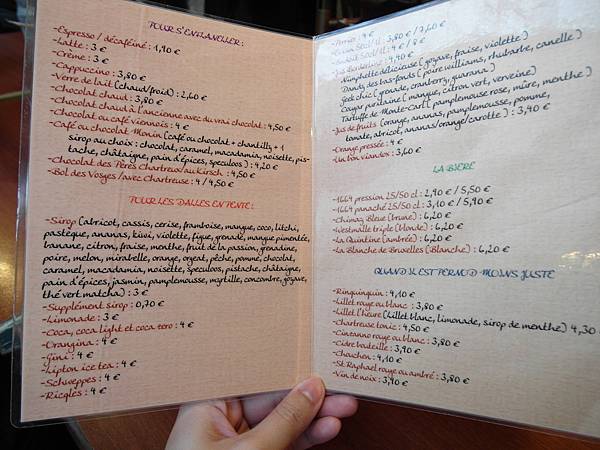 POUR S'ENFLANELLER :
-Espresso / décaféiné : 1,90 €
-Latte : 3 €
-Crème : 3 €
-Cappuccino : 3,80 €
-Verre de lait (chaud/froid) : 2,60 €
-Chocolat chaud : 3,80 €
-Chocolat chaud à l'ancienne avec du vrai chocolat : 4,50 €
-Chocolat ou café viennois : 4 €
-Café ou chocolat Monin (Café ou chocolat + chantilly + 1
sirop au choix : chocolat, caramel, macadamia, noisette, pis-
tache, châtaigne, pain d'épices, speculoos) : 4,20 €
-Chocolat des Pères Chartreux au kirsch : 4,50 €
-Bol des Vosges / avec Chartreuse : 4 / 4,50 €
POUR LES DALLES EN PENTE :
-Sirop (abricot, cassis, cerise, framboise, mangue, coco, litchi,
pastèque, ananas, kiwi, violette, figue, grenade, mangue pimentée,
banane, citron, fraise, menthe, fruit de la passion, grenadine,
poire, melon, mirabelle, orange, orgeat, pêche, pomme, chocolat,
caramel, macadamia, noisette, speculoos, pistache, châtaigne,
pain d'épices, jasmin, pamplemousse, myrtille, concombre, goyave,
thé vert matcha) : 3 €
-Supplément sirop : 0,70 €
-Limonade : 3 €
-Coca, coca light et coca zero : 4 €
-Orangina : 4 €
-Gini : 4 €
-Lipton ice tea : 4 €
-Schweppes : 4 €
-Ricqlès : 4 €
-Perrier : 4 €
50cl/1l : 3,80 € / 7,60 €
50cl/1l : 4 € / 8 €
-Jus : 4,90 €
Guinguette délicieuse (goyave, fraise, violette)
Dandy des bas-fonds (poire williams, rhubarbe, canelle)
Geek chic (grenade, cranberry, guarana)
Cagar puritaine (mangue, citron vert, verveine)
Tartuffe de Monte-Carl (pamplemousse rose, mûre, menthe)
-Jus de fruits (orange, ananas, pamplemousse, pomme,
tomate, abricot, ananas/orange/carotte) : 3,90 €
-Orange pressée : 4 €
-Un bon viandox : 3,60 €
LA BIERE
-1664 pression 25/50 cl : 2,90 € / 5,50 €
-1664 panaché 25/50 cl : 3,10 € / 5,90 €
-Chimay Bleue (brune) : 6,20 €
-Westmalle triple (blonde) : 6,20 €
-La Quintine (ambrée) : 6,20 €
-La Blanche de Bruxelles (Blanche) : 6,20 €
QUAND IL EST PERNOD MOINS JUSTE
-Rinquinquin : 4,10 €
-Lillet rouge ou blanc : 3,80 €
-Lillet l'heure (Lillet blanc, limonade, sirop de menthe) 4,30
-Chartreuse tonic : 4,50 €
-Cinzanno rouge ou blanc : 3,80 €
-Cidre bouteille : 3,90 €
-Chouchen : 4,10 €
-St Raphael rouge ou ambré : 3,80 €
-Vin de noix : 3,90 €